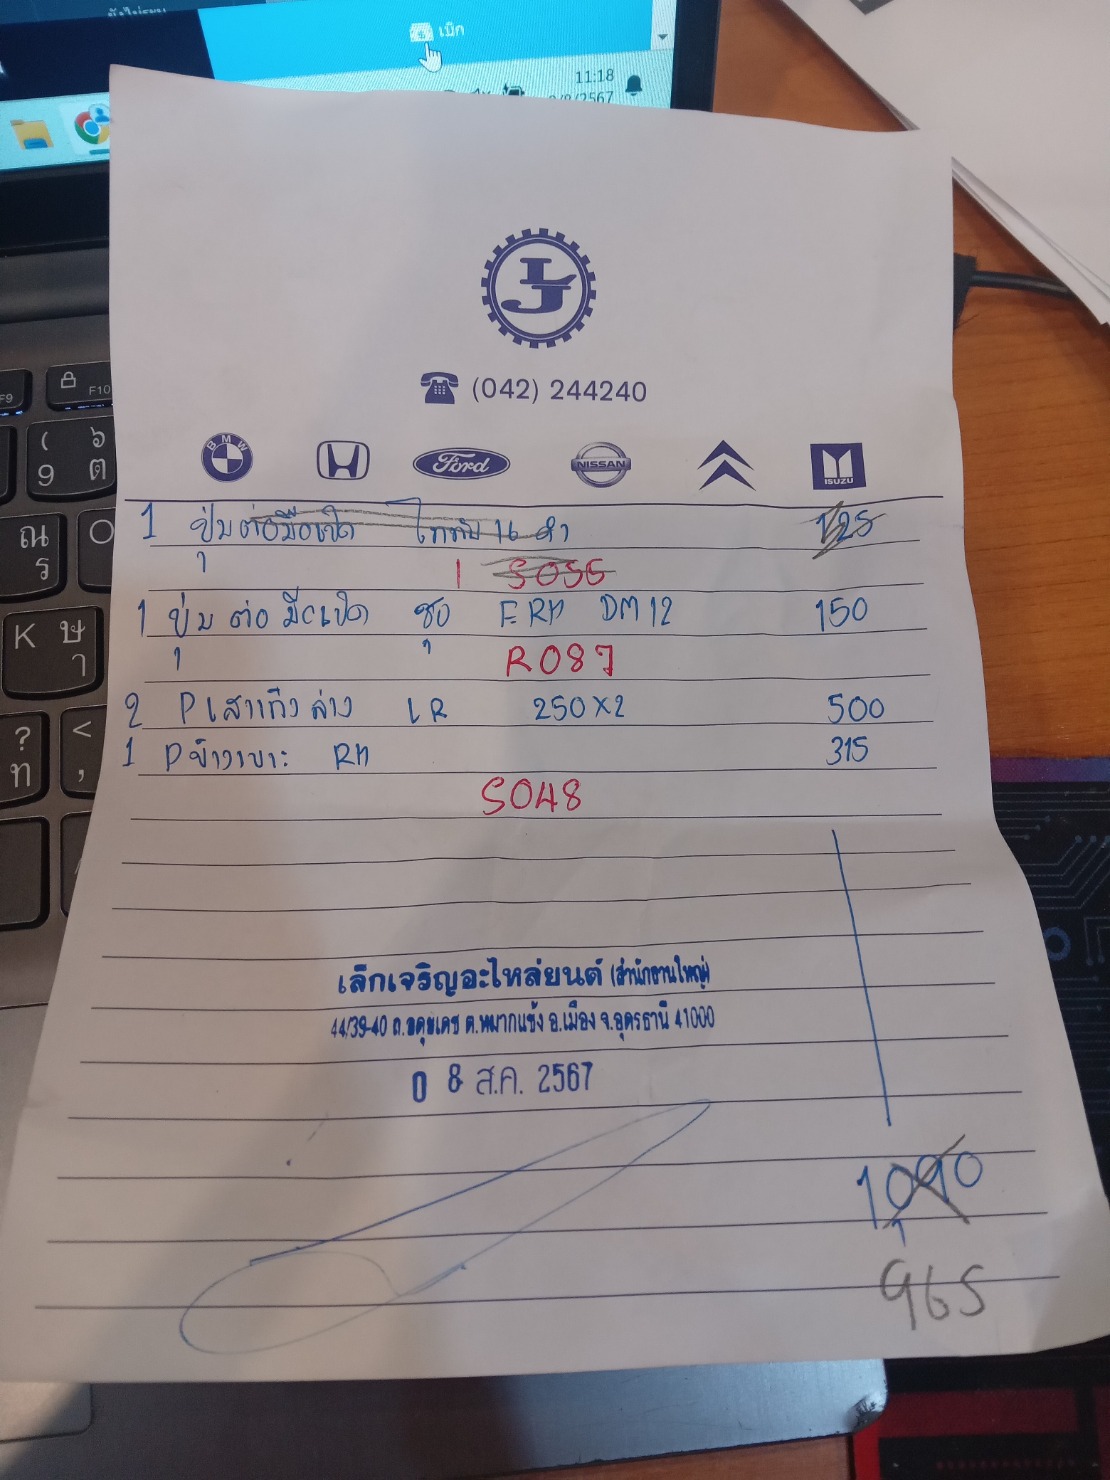 เบิก
11:18
/8/2567
F9
F10
LJ
(042) 244240
BMW
Ford
NISSAN
ISUZU
1 ปุ่มต่อมือเปิด 16 ดำ 125
1 S055
1 ปุ่มต่อมือเปิด RH DM12 150
R087
2 Pเสาเก๋งล่าง LR 250x2 500
1 Pข้างเบาะ RH 315
S048
เล็กเจริญอะไหล่ยนต์ (สำนักงานใหญ่)
44/39-40 ถ.อดุยเดช ต.หมากแข้ง อ.เมือง จ.อุดรธานี 41000
0 8 ส.ค. 2567
1,090
965
( ๖
9 ต
ณ
ร
O
K ษ
า
?
ท
<
,